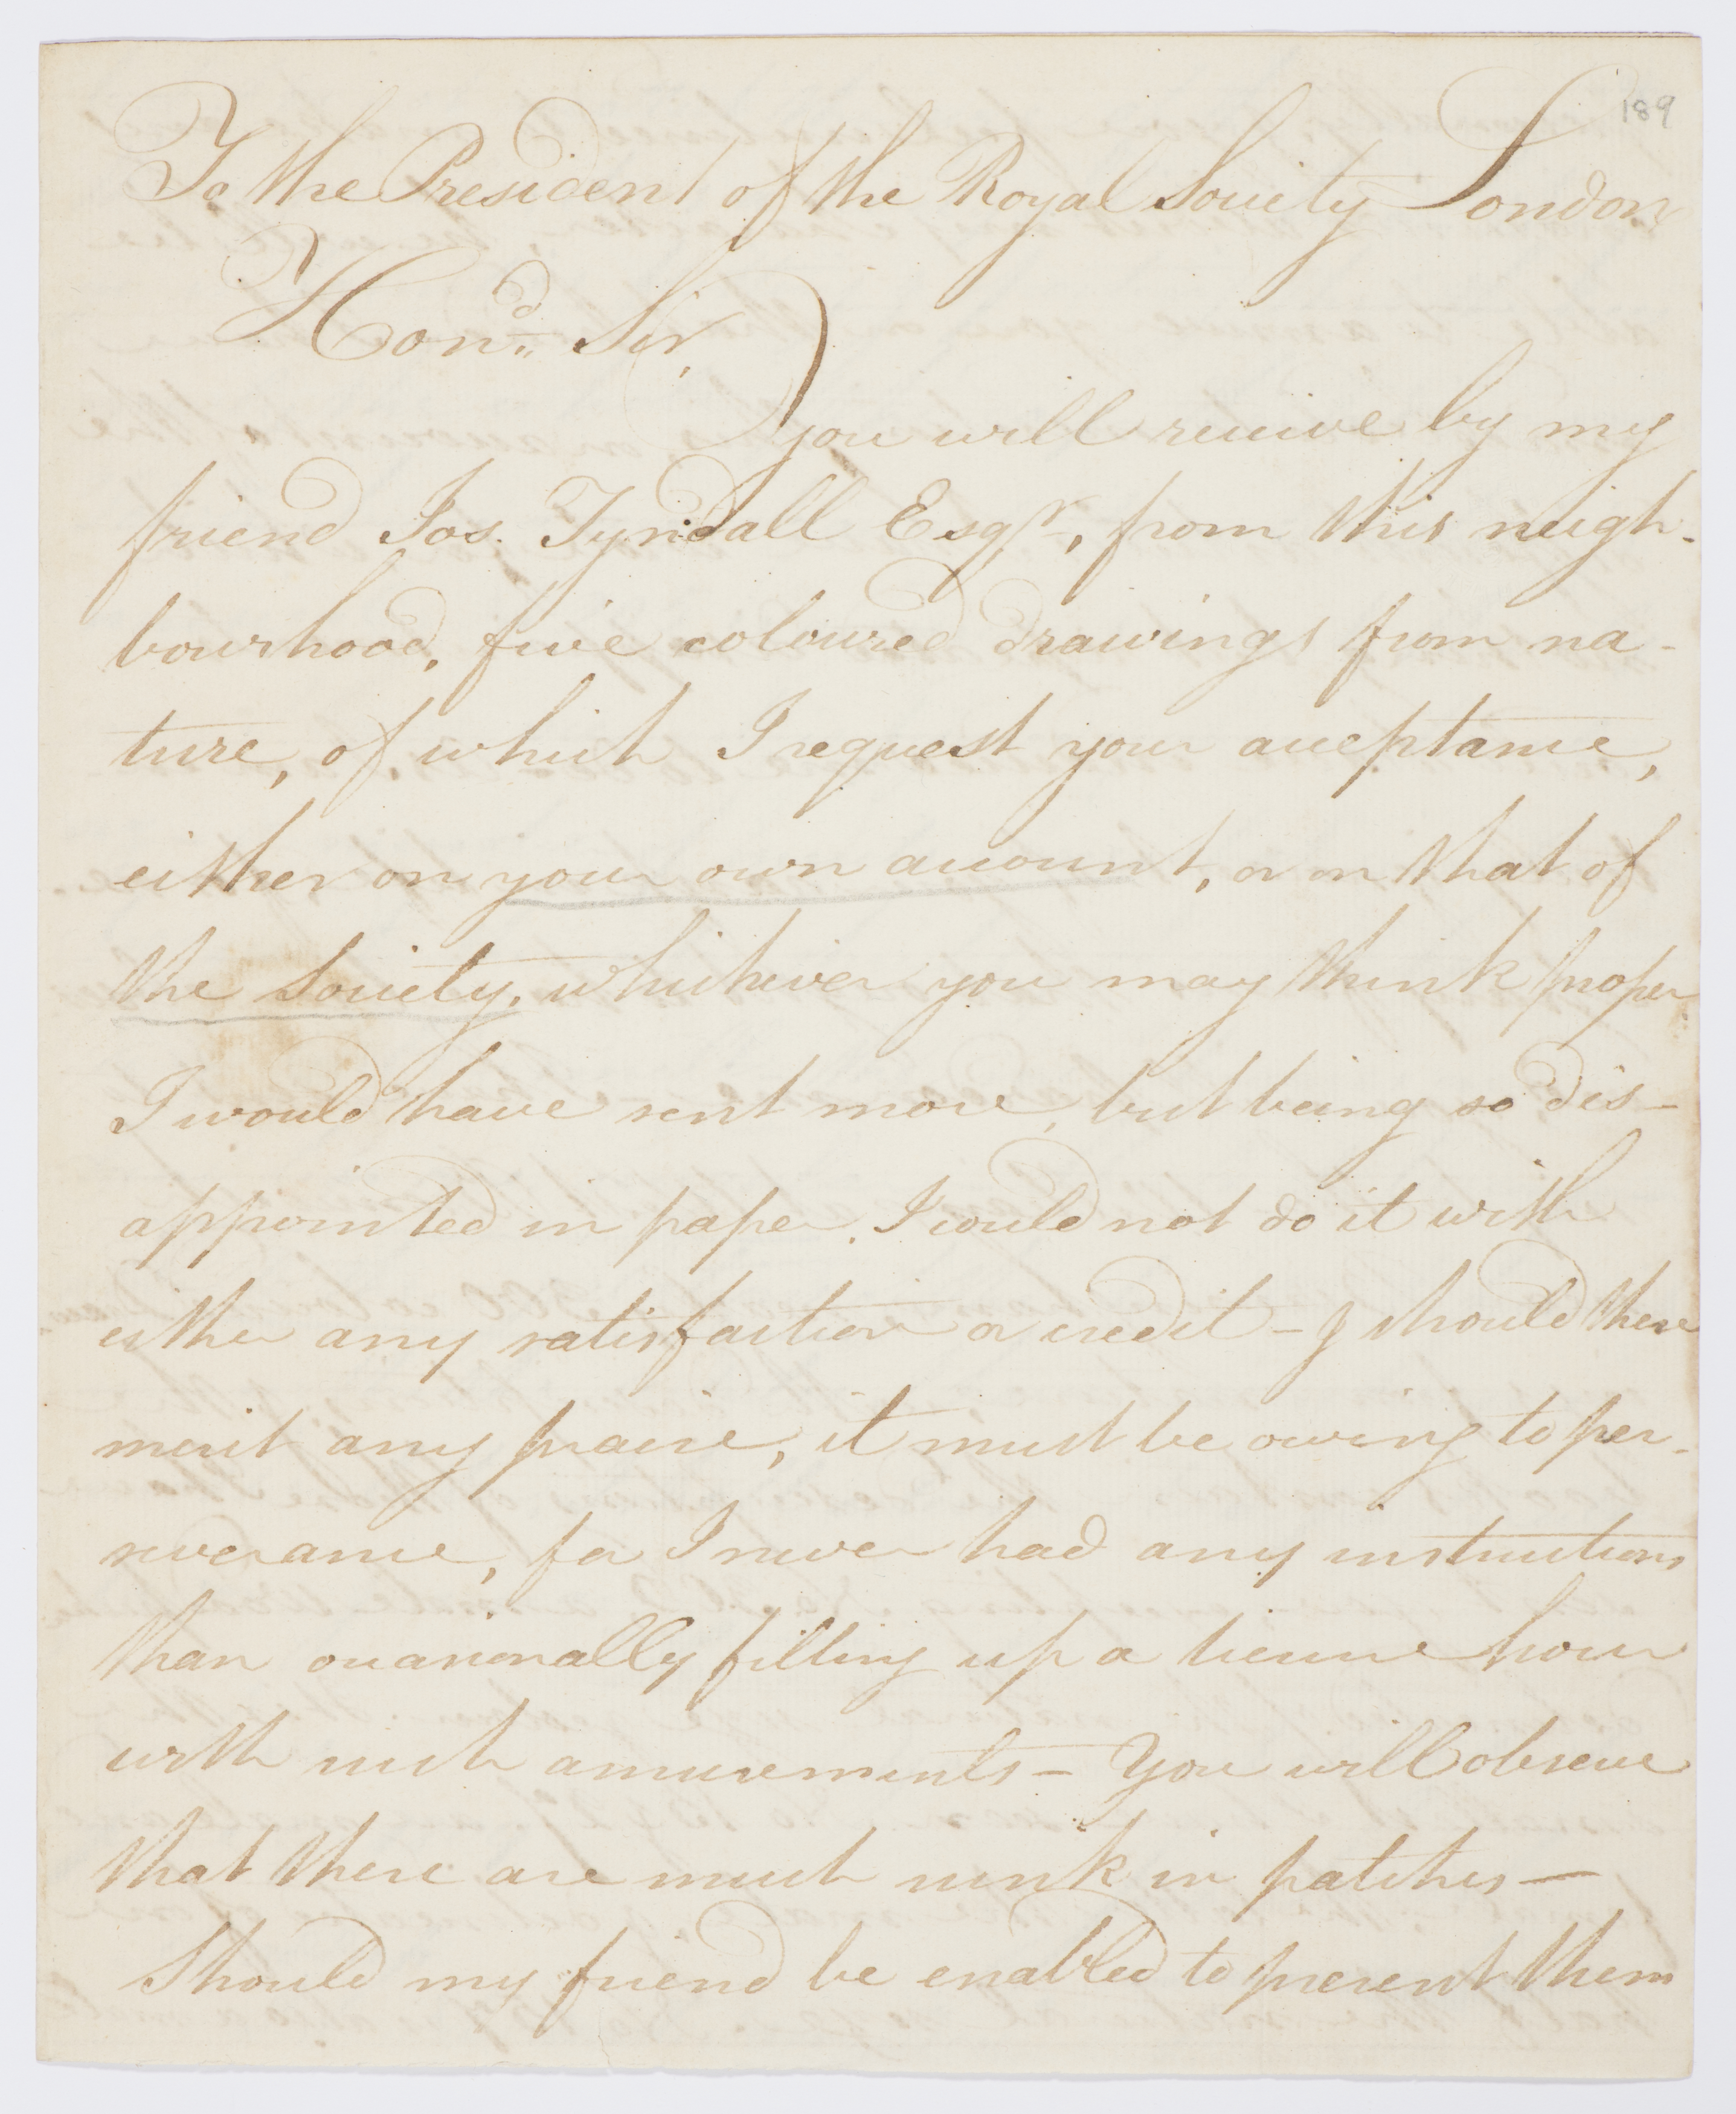 189
To the President of the Royal Society London
Hond. Sir,
you will receive by my
friend Jos. Tyndall Esqr, from this neigh-
bourhood, five coloured drawings from na-
ture, of which I request your acceptance,
either on your own account, or on that of
the Society, whichever you may think proper
I would have sent more, but being so dis-
appointed in paper, I could not do it with
either any satisfaction or credit – I should there
merit any praise, it must be owing to per-
severance, for I never had any instructions
than occasionally filling up a liesure hour
with such amusements – You will observe
that there are much sunk in patches —
Should my friend be enabled to present them